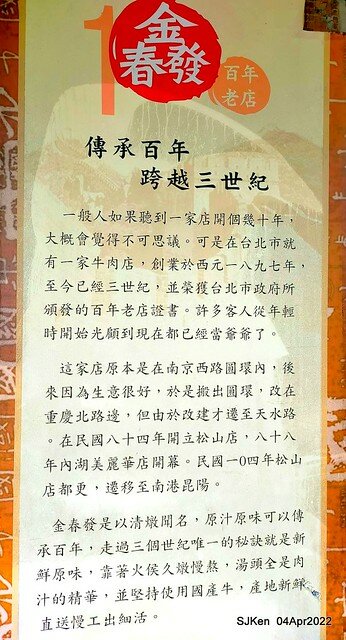 金春發
百年
老店
傳承百年
跨越三世紀
一般人如果聽到一家店開個幾十年，
大概會覺得不可思議。可是在台北市就
有一家牛肉店，創業於西元一八九七年，
至今已經三世紀，並榮獲台北市政府所
頒發的百年老店證書。許多客人從年輕
時開始光顧到現在都已經當爺爺了。
這家店原本是在南京西路圓環內，後
來因為生意很好，於是搬出圓環，改在
重慶北路邊，但由於改建才遷至天水路
。在民國八十四年開立松山店，八十八
年內湖美麗華店開幕。民國一0四年松山
店都更，遷移至南港昆陽。
金春發是以清燉聞名，原汁原味可以傳
承百年，走過三個世紀唯一的秘訣就是新
鮮原味，靠著火侯久燉慢熬，湯頭全是肉
汁的精華，並堅持使用國產牛，產地新鮮
直送慢工出細活。
SJKen 04Apr2022